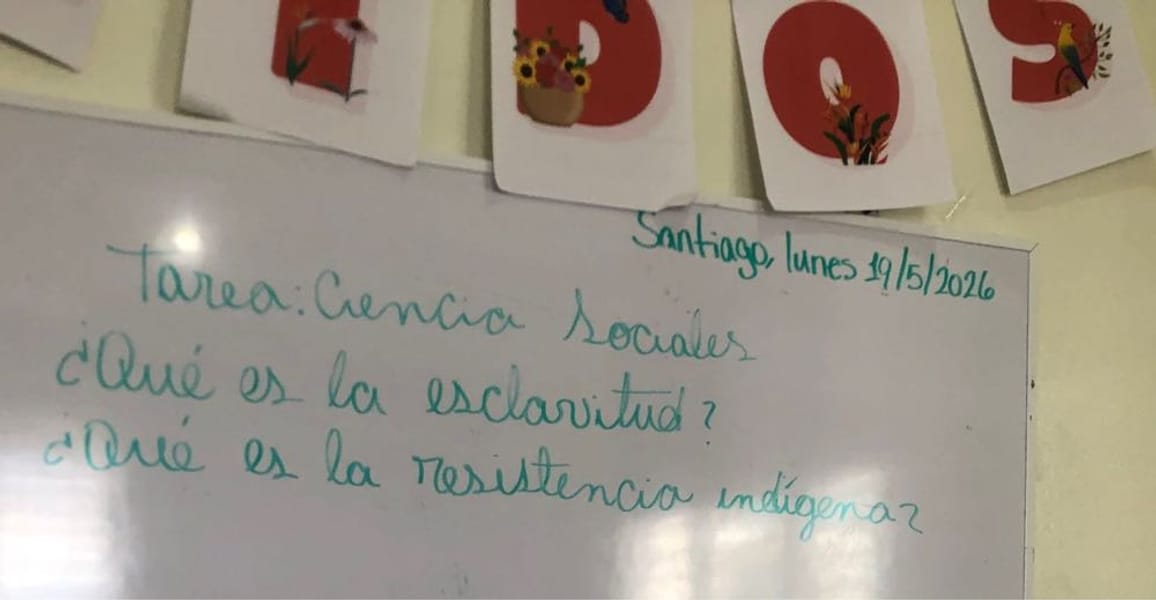 IDOS
Santiago, lunes 19/5/2026
Tarea: Ciencia Sociales
¿Qué es la esclavitud?
¿Qué es la resistencia indígena?